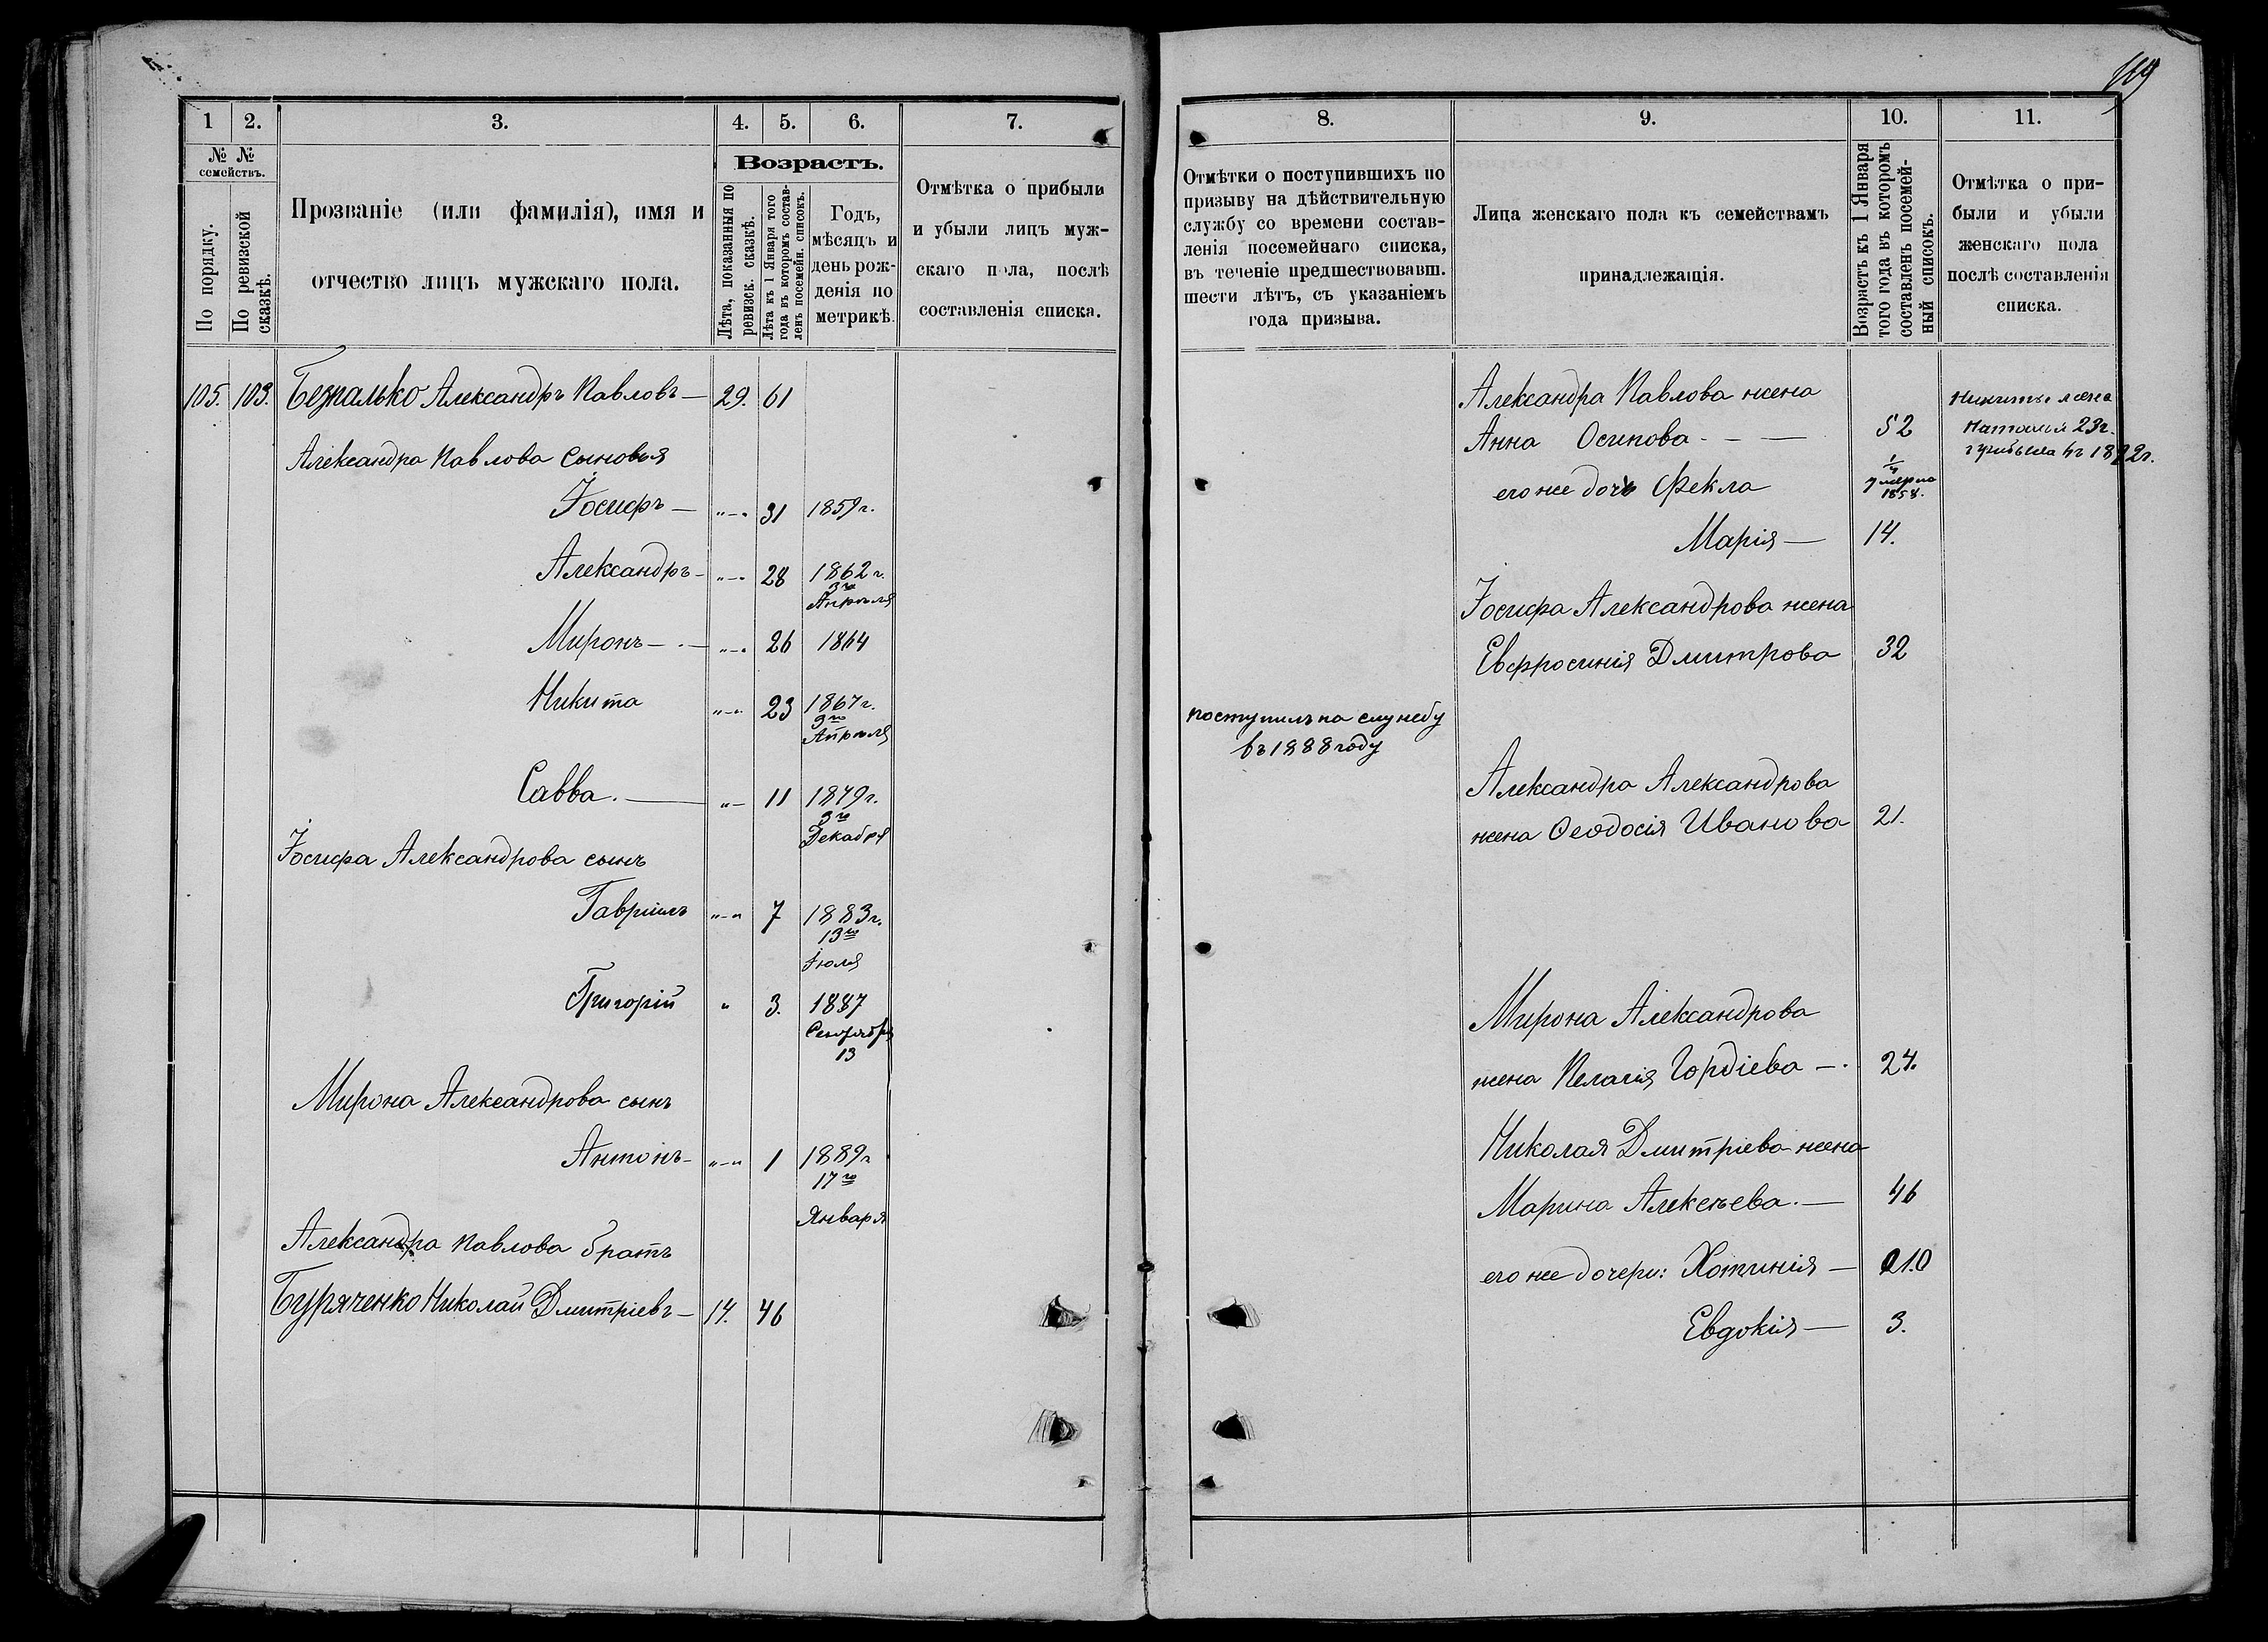 119
1
2.
3.
4.
5.
6.
7.
№ № семействъ.
По порядку.
По ревизской сказкѣ.
Прозваніе (или фамилія), имя и
отчество лицъ мужскаго пола.
Возрастъ.
Лѣта, показанныя по
ревизск. сказкѣ.
Лѣта къ 1 Января того
года въ которомъ состав-
ленъ посемейн. списокъ.
Годъ,
мѣсяцъ и
день рож-
денія по
метрикѣ.
Отмѣтка о прибыли
и убыли лицъ муж-
скаго пола, послѣ
составленія списка.
105. 103. Безпалько Александръ Павловъ — 29. 61
Александра Павлова сыновья
Іосифъ — „—„ 31 1859 г.
Александръ — „—„ 28 1862 г.
3го
Апрѣля
Миронъ — „—„ 26 1864
Никита „—„ 23 1867 г.
9го
Апрѣля
Савва. — „— 11 1879 г.
3го
Декабря
Іосифа Александрова сынъ
Гавріилъ „—„ 7 1883 г.
13го
Іюля
Григорій „ 3. 1887
Сентября
13
Мирона Александрова сынъ
Антонъ — „—„ 1 1889 г
17го
Января
Александра Павлова братъ
Буряченко Николай Дмитріевъ — 14. 46
8.
9.
10.
11.
Отмѣтки о поступившихъ по
призыву на дѣйствительную
службу со времени состав-
ленія посемейнаго списка,
въ теченіе предшествовавш.
шести лѣтъ, съ указаніемъ
года призыва.
Лица женскаго пола къ семействамъ
принадлежащія.
Возрастъ къ 1 Января
того года въ которомъ
составленъ посемей-
ный списокъ.
Отмѣтка о при-
были и убыли
женскаго пола
послѣ составленія
списка.
Александра Павлова жена
Анна Осипова - - — 52
Никиты жена
Наталия 23 г.
прибыла въ 1892 г.
его же дочь Фекла
умерла
1858.
Марія — 14.
Іосифа Александрова жена
Евфросинія Дмитрова 32
поступилъ на службу
въ 1888 году
Александра Александрова
жена Ѳеодосія Иванова 21.
Мирона Александрова
жена Пелагія Гордіева — . 24.
Николая Дмитріева жена
Марина Алексѣева. — 46
его же дочери: Хотинія — 10
Евдокія — 3.